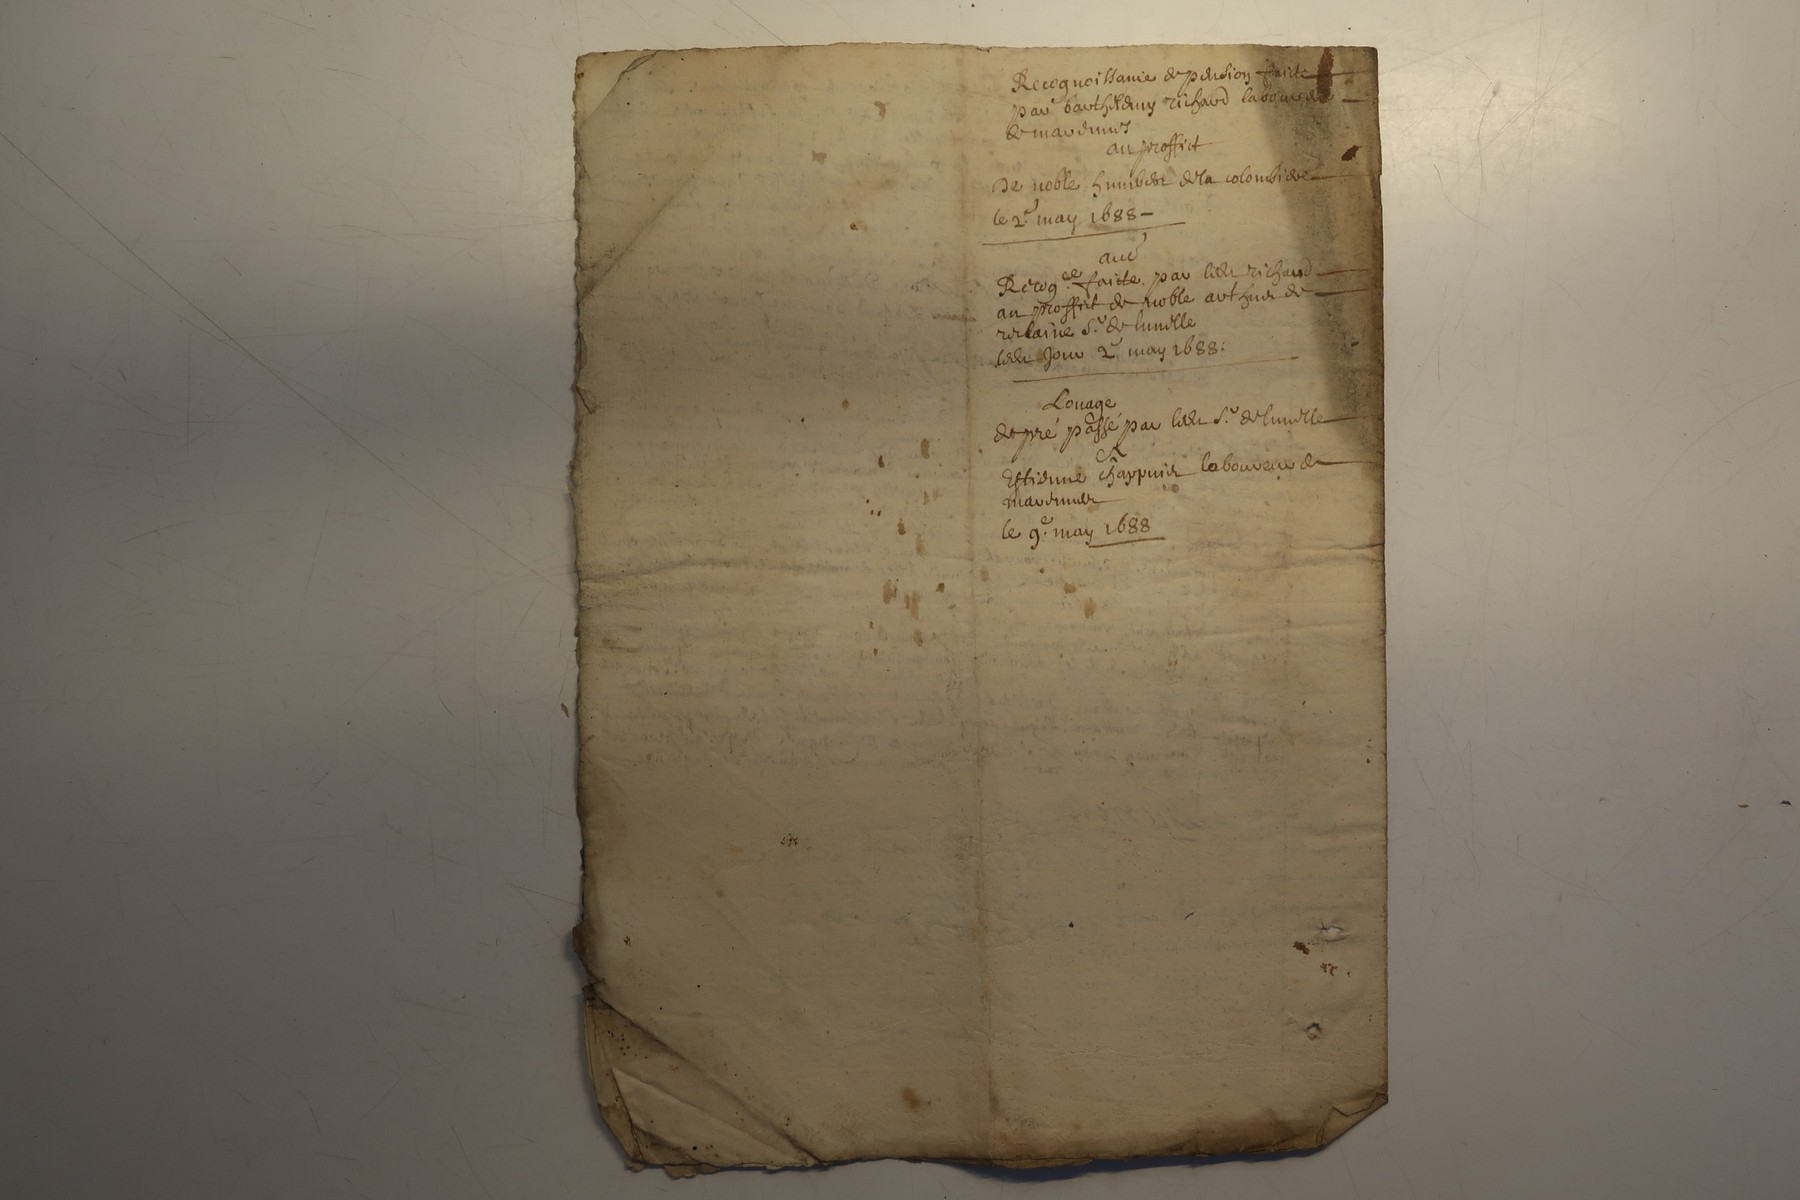 Recognoissance de pention faicte
par barthelemy richard laboureur
de marennes
au proffict
De noble humbert dela colombiere
le 2e may 1688 –
aud
Recoge faicte par ledt richard
au proffict de noble arthur de
Sr de lunelle
ledt Jour 2e may 1688:
Louage
de pré passé par ledt Sr de lunelle
Et
Estienne chappuis laboureur de
marennes
le 9e may 1688